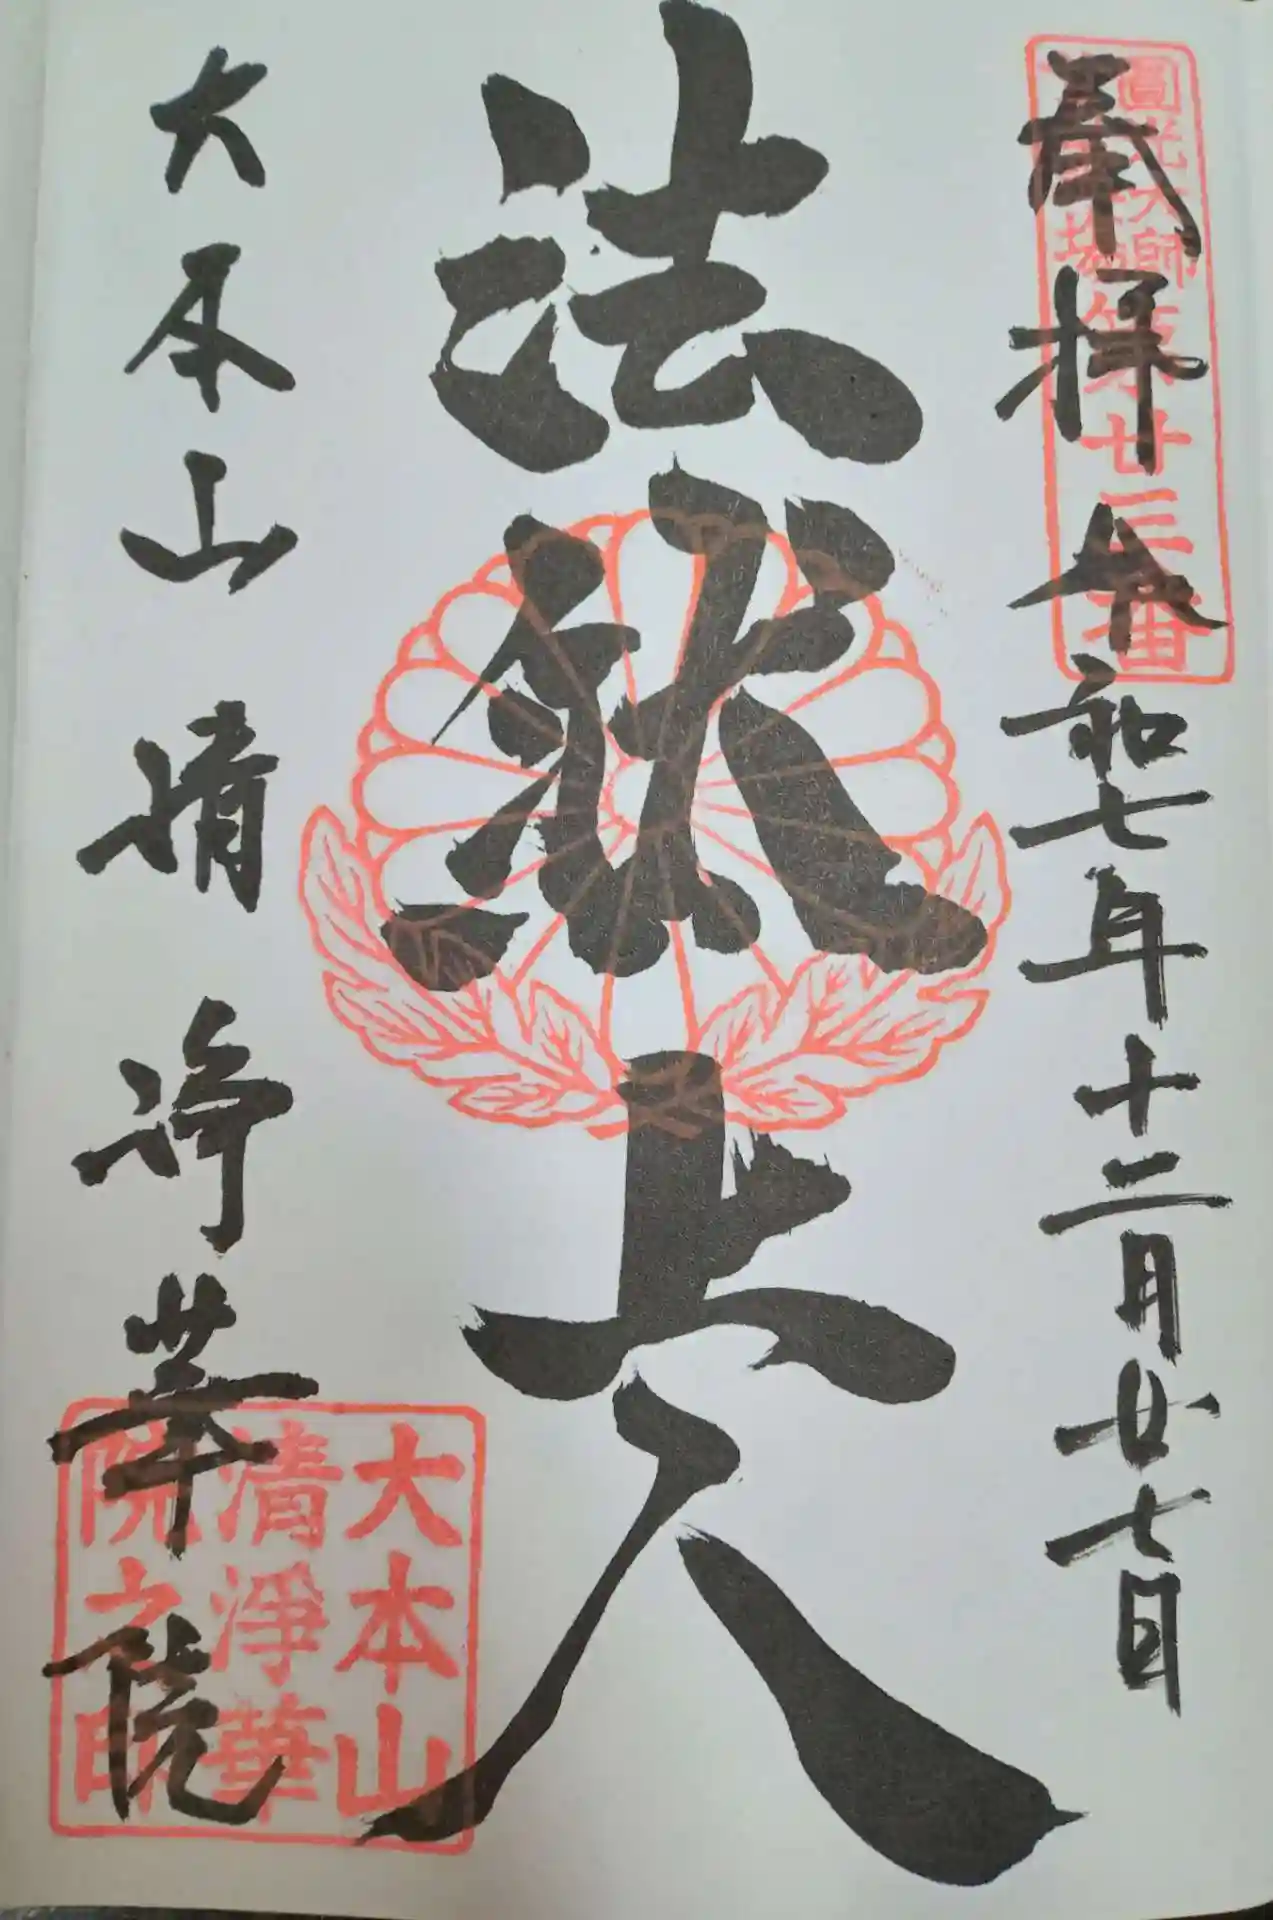 奉拝 令和七年十二月廿七日
圓光大師
霊場
第廿三番
法然上人
大本山 清浄華院
大本山
清淨華
院之印